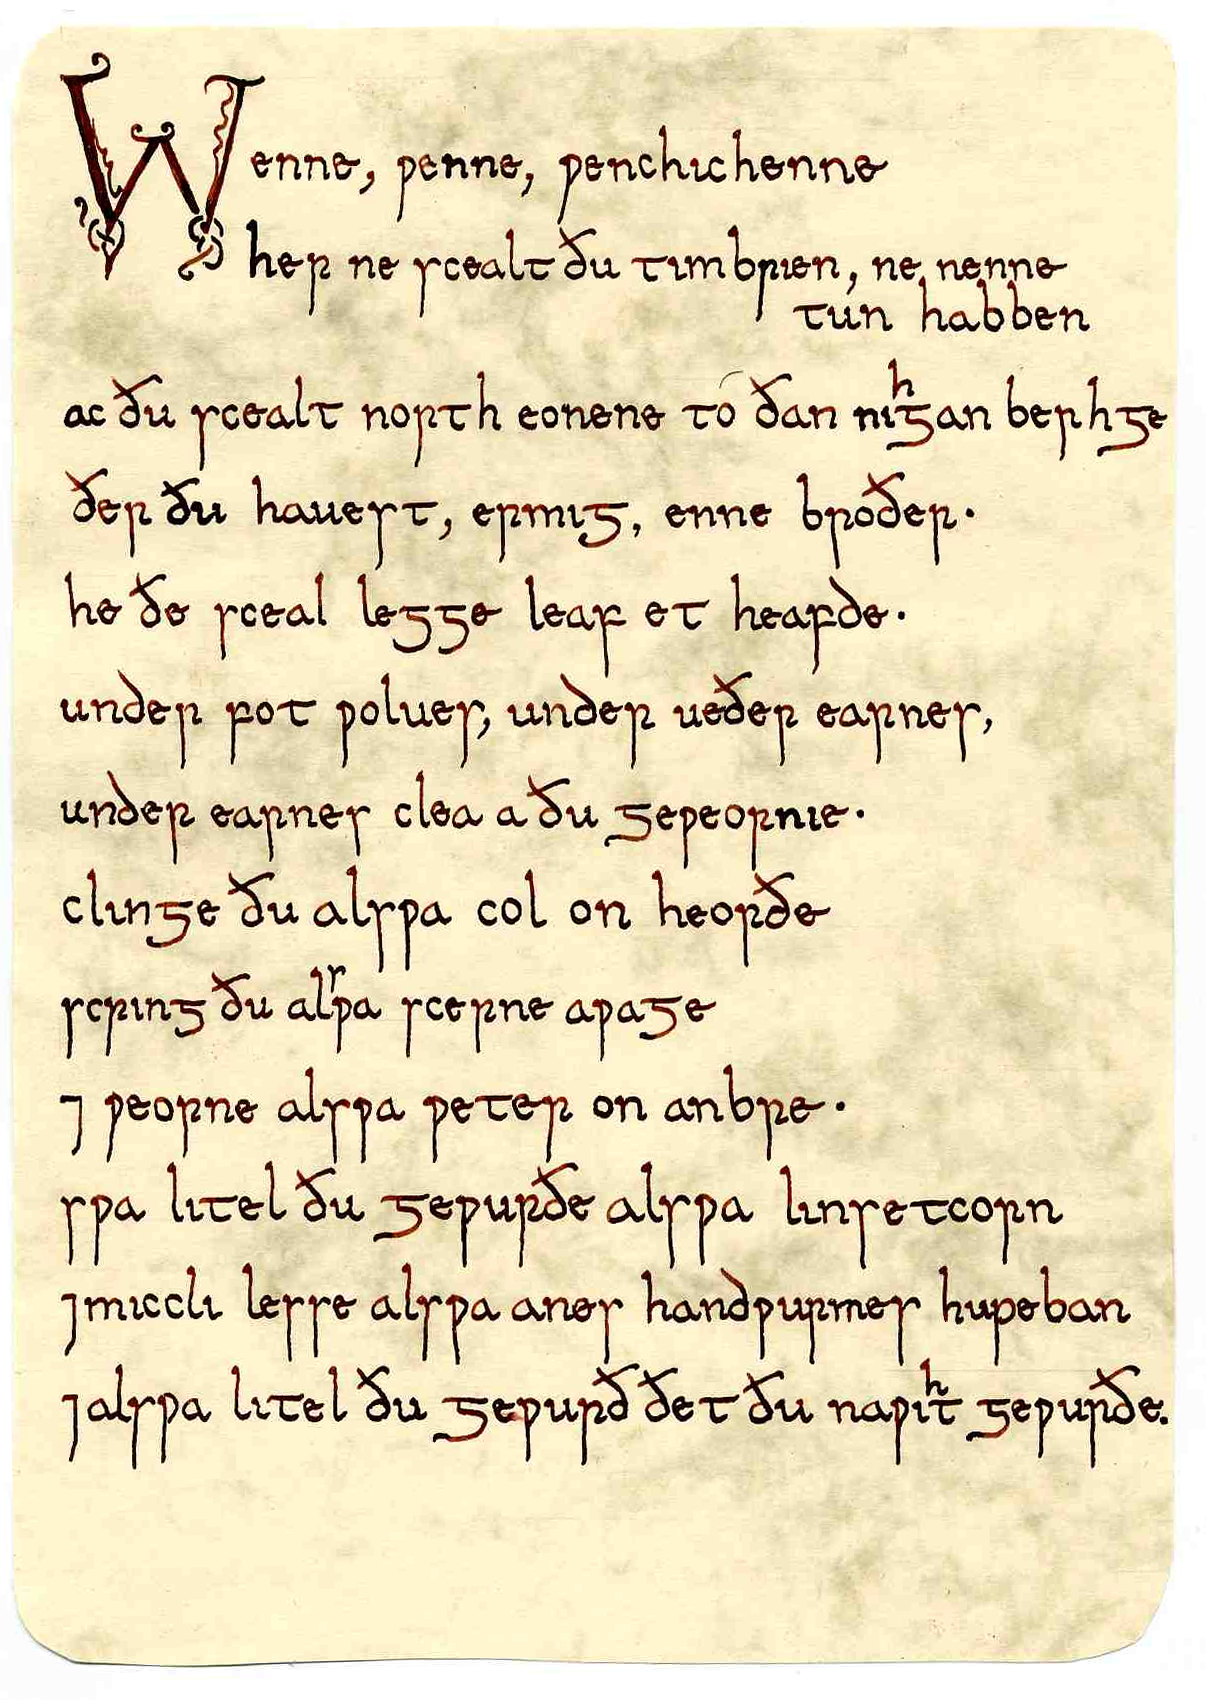 Wenne, ƿenne, ƿenchichenne
her ne scealt ðu timbrien, ne nenne
tun habben
ac ðu scealt north eonene tó ðan nihgan berhge
ðer ðu hauest, ermig, enne broðer·
he ðe sceal legge leaf et heafde·
under fot ƿolues, under ueðer earnes,
under earnes clea a ðu geƿeornie·
clinge ðu alsƿa col on heorðe
scring ðu alsƿa scerne aƿage
⁊ ƿeorne alsƿa ƿeter on anbre·
sƿa litel ðu geƿurðe alsƿa linsetcorn
⁊miccli lesse alsƿa anes handƿurmes huƿeban
⁊alsƿa litel ðu geƿurð ðet ðu naƿiht geƿurðe.